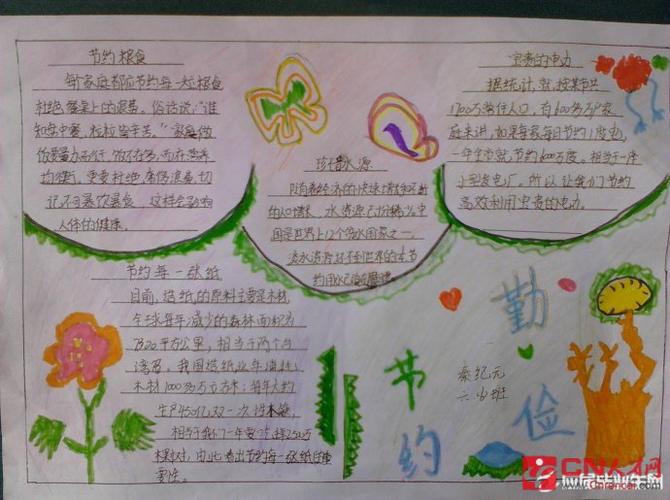 节约粮食
每个家庭都应节约每一粒粮食
杜绝餐桌上的浪费。俗话说："谁
知盘中餐，粒粒皆辛苦。"家庭做
饭要量力而行，饭不在多，而在营养
均衡，更要杜绝铺张浪费，切
记不可暴饮暴食，这样会影响
人体的健康。
珍惜水源
随着经济的快速增长和不断
的人口增长，水资源已
国是世界上12个贫水国家之一。
淡水资源还不到世界的
约用水已
宝贵的电力
据统计，就按某市共
1700万常住人口，有600多万户家
庭来讲，如果每家每日节约1度电，
一年全市就节约600万度。相当于一座
小型发电厂。所以让我们节约
高效利用宝贵的电力。
节约每一张纸
目前，造纸的原料主要是木材，
全球每年减少的森林面积为
7300平方公里，相当于两个
湾里。我国造纸业年消耗
木材1000多万立方米；每年大约
生产450亿双一次性木筷，
相当于我们一年要
木果树。由此看出节约每一张纸
要性。
勤
俭
节
约
秦纪元
六
班
CN人才网
www.cnrencai.com
应届毕业生网